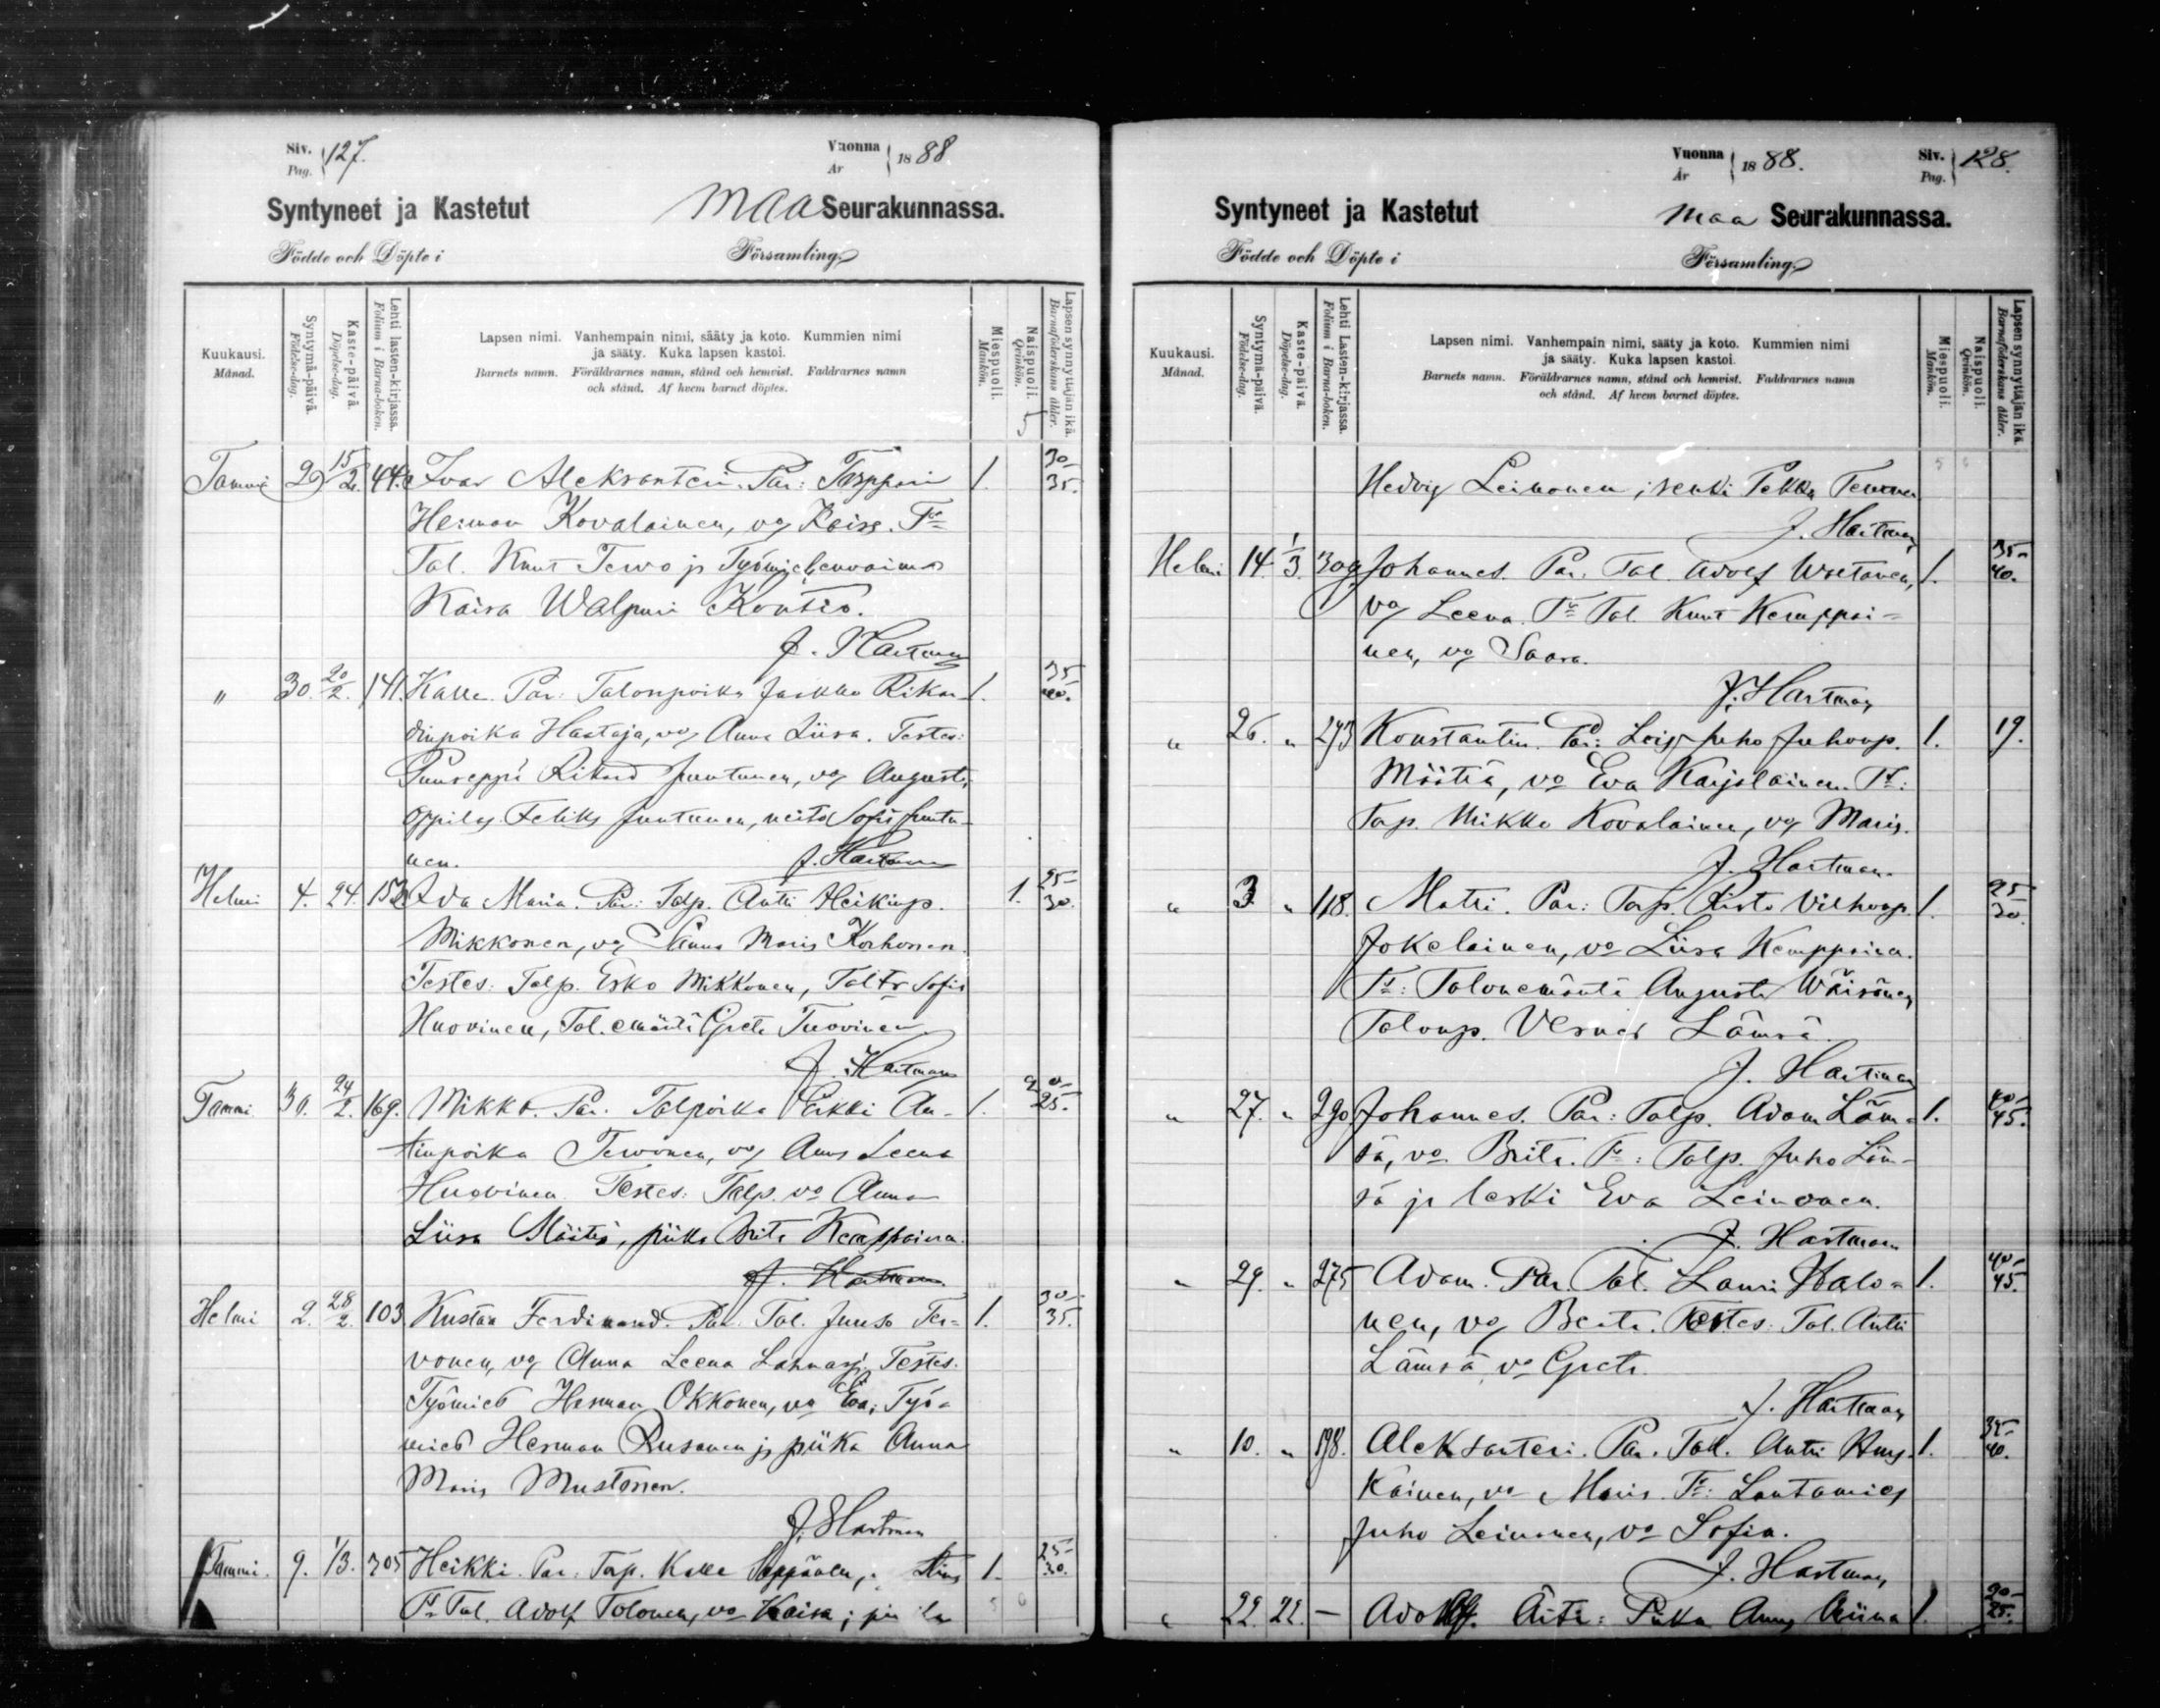 Siv. Pag. 127. Vuonna År 1888
Syntyneet ja Kastetut Maa Seurakunnassa.
Födde och Döpte i Församling
Kuukausi. Månad. Syntymä-päivä. Födelse-dag. Kaste-päivä. Döpelse-dag. Lehti lasten-kirjassa. Folium i Barna-boken. Lapsen nimi. Vanhempain nimi, sääty ja koto. Kummien nimi ja sääty. Kuka lapsen kastoi. Barnets namn. Föräldrarnes namn, stånd och hemvist. Faddrarnes namn och stånd. Af hvem barnet döptes. Miespuoli. Mankön. Naispuoli. Qvinkön. Lapsen synnyttäjän ikä. Barnaföderskans ålder.
Tammi 29 15/2 44. Ivar Aleksanteri. Par: Torppari 1. 30-35.
Herman Kovalainen, vo Kaisa. Ts
Tal. Knut Tervo ja Työmiehenvaimo
Kaisa Walpuri Kontio.
J. Hartman
" 30. 20/2. 141. Kalle. Par: Talonpoika Jaakko Rikar- 1. 35-40.
dinpoika Hartaja, vo Anna Liisa. Testes:
Puuseppä Rikard Juntunen, vo Augusta,
oppilas Feliks Juntunen, neito Sofia Juntu-
nen. J. Hartman
Helmi 4. 24. 152 Ida Maria. Par: Talp. Antti Heikinp. 1. 25-30.
Mikkonen, vo Sanna Maria Korhonen.
Testes: Talp. Esko Mikkonen, Tal tr Sofia
Huovinen, Tal. emäntä Greta Tuovinen
J. Hartman
Tammi 30. 24/2. 169. Mikko. Par. Talpoika Erkki An- 1. 20-25.
tinpoika Tervonen, vo Anna Leena
Huovinen. Testes: Talp. vo Anna
Liisa Määttä, piika Brita Kemppainen.
J. Hartman
Helmi 2. 28/2. 103 Kustaa Ferdinand. Par. Tal. Juuso Ter- 1. 30-35.
vonen, vo Anna Leena Testes:
Työmies Herman Okkonen, vo Eva; Työ-
mies Herman Rusanen ja piika Anna
Maria Mustonen.
J. Hartman
Tammi. 9. 1/3. 305 Heikki. Par: Torp. Kalle Seppänen, 1. 25-30.
Ts Tal. Adolf Tolonen, vo Kaisa; piika
Vuonna År 1888. Siv. Pag. 128.
Syntyneet ja Kastetut Maa Seurakunnassa.
Födde och Döpte i Församling
Kuukausi. Månad. Syntymä-päivä. Födelse-dag. Kaste-päivä. Döpelse-dag. Lehti Lasten-kirjassa. Folium i Barna-boken. Lapsen nimi. Vanhempain nimi, sääty ja koto. Kummien nimi ja sääty. Kuka lapsen kastoi. Barnets namn. Föräldrarnes namn, stånd och hemvist. Faddrarnes namn och stånd. Af hvem barnet döptes. Miespuoli. Mankön. Naispuoli. Qvinkön. Lapsen synnyttäjän ikä. Barnaföderskans ålder.
Hedvig Leinonen; renki Pekka Tervonen
J. Hartman
Helmi 14. 1/3. 309 Johannes. Par. Tal. Adolf Wäätänen, 1. 35-40.
vo Leena. Ts Tal. Knut Kemppai-
nen, vo Saara.
J. Hartman
" 26. " 293 Konstantin. Par: Lois Juho Juhonp. 1. 19.
Määttä, vo Eva Karjalainen. Ts:
Torp. Mikko Kovalainen, vo Maria.
J. Hartman.
" 3. " 118. Matti. Par: Torp. Risto Vilhonp. 1. 25-30.
Jokelainen, vo Liisa Kemppainen.
Ts: Talonemäntä Augusta Wäisänen,
Talonp. Verner Lämsä.
J. Hartman
" 27. " 290 Johannes. Par: Talp. Adam Läm- 1. 40-45.
sä, vo Brita. Ts: Talp. Juho Läm-
sä ja leski Eva Leinonen.
J. Hartman
" 29. " 275 Adam. Par. Tal. Lauri Halo- 1. 40-45.
nen, vo Beata. Testes: Tal. Antti
Lämsä, vo Greta.
J. Hartman
" 10. " 198. Aleksanteri. Par. Tal. Antti 1. 35-40.
kainen, vo Maria. Ts: Lautamies
Juho Leinonen, vo Sofia.
J. Hartman
" 22. 22. — Adolf. Äiti: Piika Anna Riina 1. 20-25.